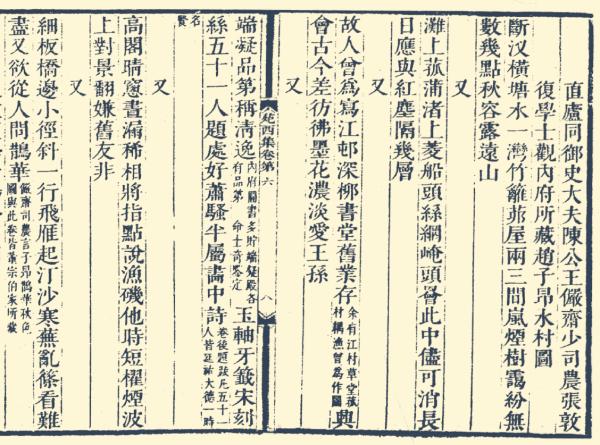 直廬同御史大夫陳公王儼齋少司農張敦
復學士觀內府所藏趙子昂水村圖
斷汊橫塘水一灣竹籬茆屋兩三間嵐煙樹靄紛無
數幾點秋容露遠山
又
灘上菰蒲渚上菱船頭絲網崦頭罾此中儘可消長
日應與紅塵隔幾層
又
故人曾爲寫江邨深柳書堂舊業存余有江村草堂蓀村耦漁曾爲作圖與
會古今差彷彿墨花濃淡愛王孫
又
苑西集卷第六 八
端凝品第稱清逸內府圖書多貯端凝殿各有品第命士奇鑒定玉軸牙籤宋刻
絲五十一人題處好蕭騷半屬畫中詩卷後題跋凡五十一人皆延祐大德一時
名賢
又
高閣晴窻晝漏稀相將指點說漁磯他時短櫂煙波
上對景翻嫌舊友非
又
細板橋邊小徑斜一行飛雁起汀沙寒蕪亂篠看難
盡又欲從人問鵲華儼齋司農言子昂鵲華秋色圖與此卷皆董宗伯家所藏